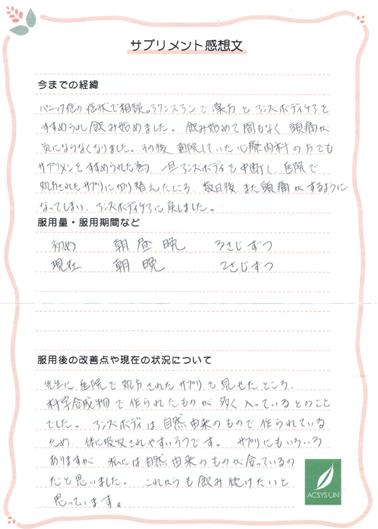 サプリメント感想文
今までの経緯
パニック症の症状で相談。フランスランで漢方とフランスボディケアを
すすめられ飲み始めました。飲み始めて間もなく頭痛が
気にならなくなりました。その後、通院していた心療内科の方でも
サプリメントをすすめられた為、一旦ボディを中断し、医院で
処方されたサプリに切り替えたところ、数日後また頭痛がするように
なってしまい、ボディケアに戻しました。
服用量・服用期間など
初め 朝昼晩 3さじずつ
現在 朝 晩 2さじずつ
服用後の改善点や現在の状況について
先生に医院で処方されたサプリを見せたところ、
科学合成物で作られたものが多く入っているとのこと
でした。ボディは自然由来のもので作られている
ため 体に吸収されやすいそうです。サプリにもいろいろ
ありますが 私には自然由来のものが合っているの
だと思いました。これからも飲み続けたいと
思っています。
ACSYSUN